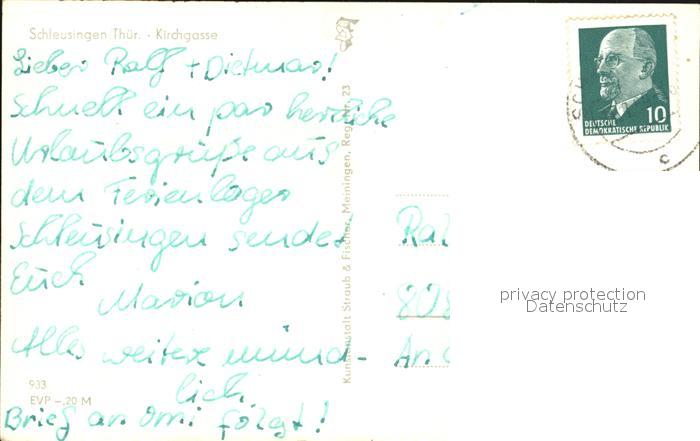 Schleusingen Thür. - Kirchgasse
Lieber Ralf + Dietmar!
Schnell ein par herzliche
Urlaubsgrüße aus
dem Ferienlager
Schleusingen sendet
Euch
Marion
Alles weitere münd-
lich
Brief an Omi folgt!
933
EVP -,20 M
Kunstanstalt Straub & Fischer, Meiningen, Reg. 23
10
DEUTSCHE
DEMOKRATISCHE REPUBLIK
privacy protection
Datenschutz